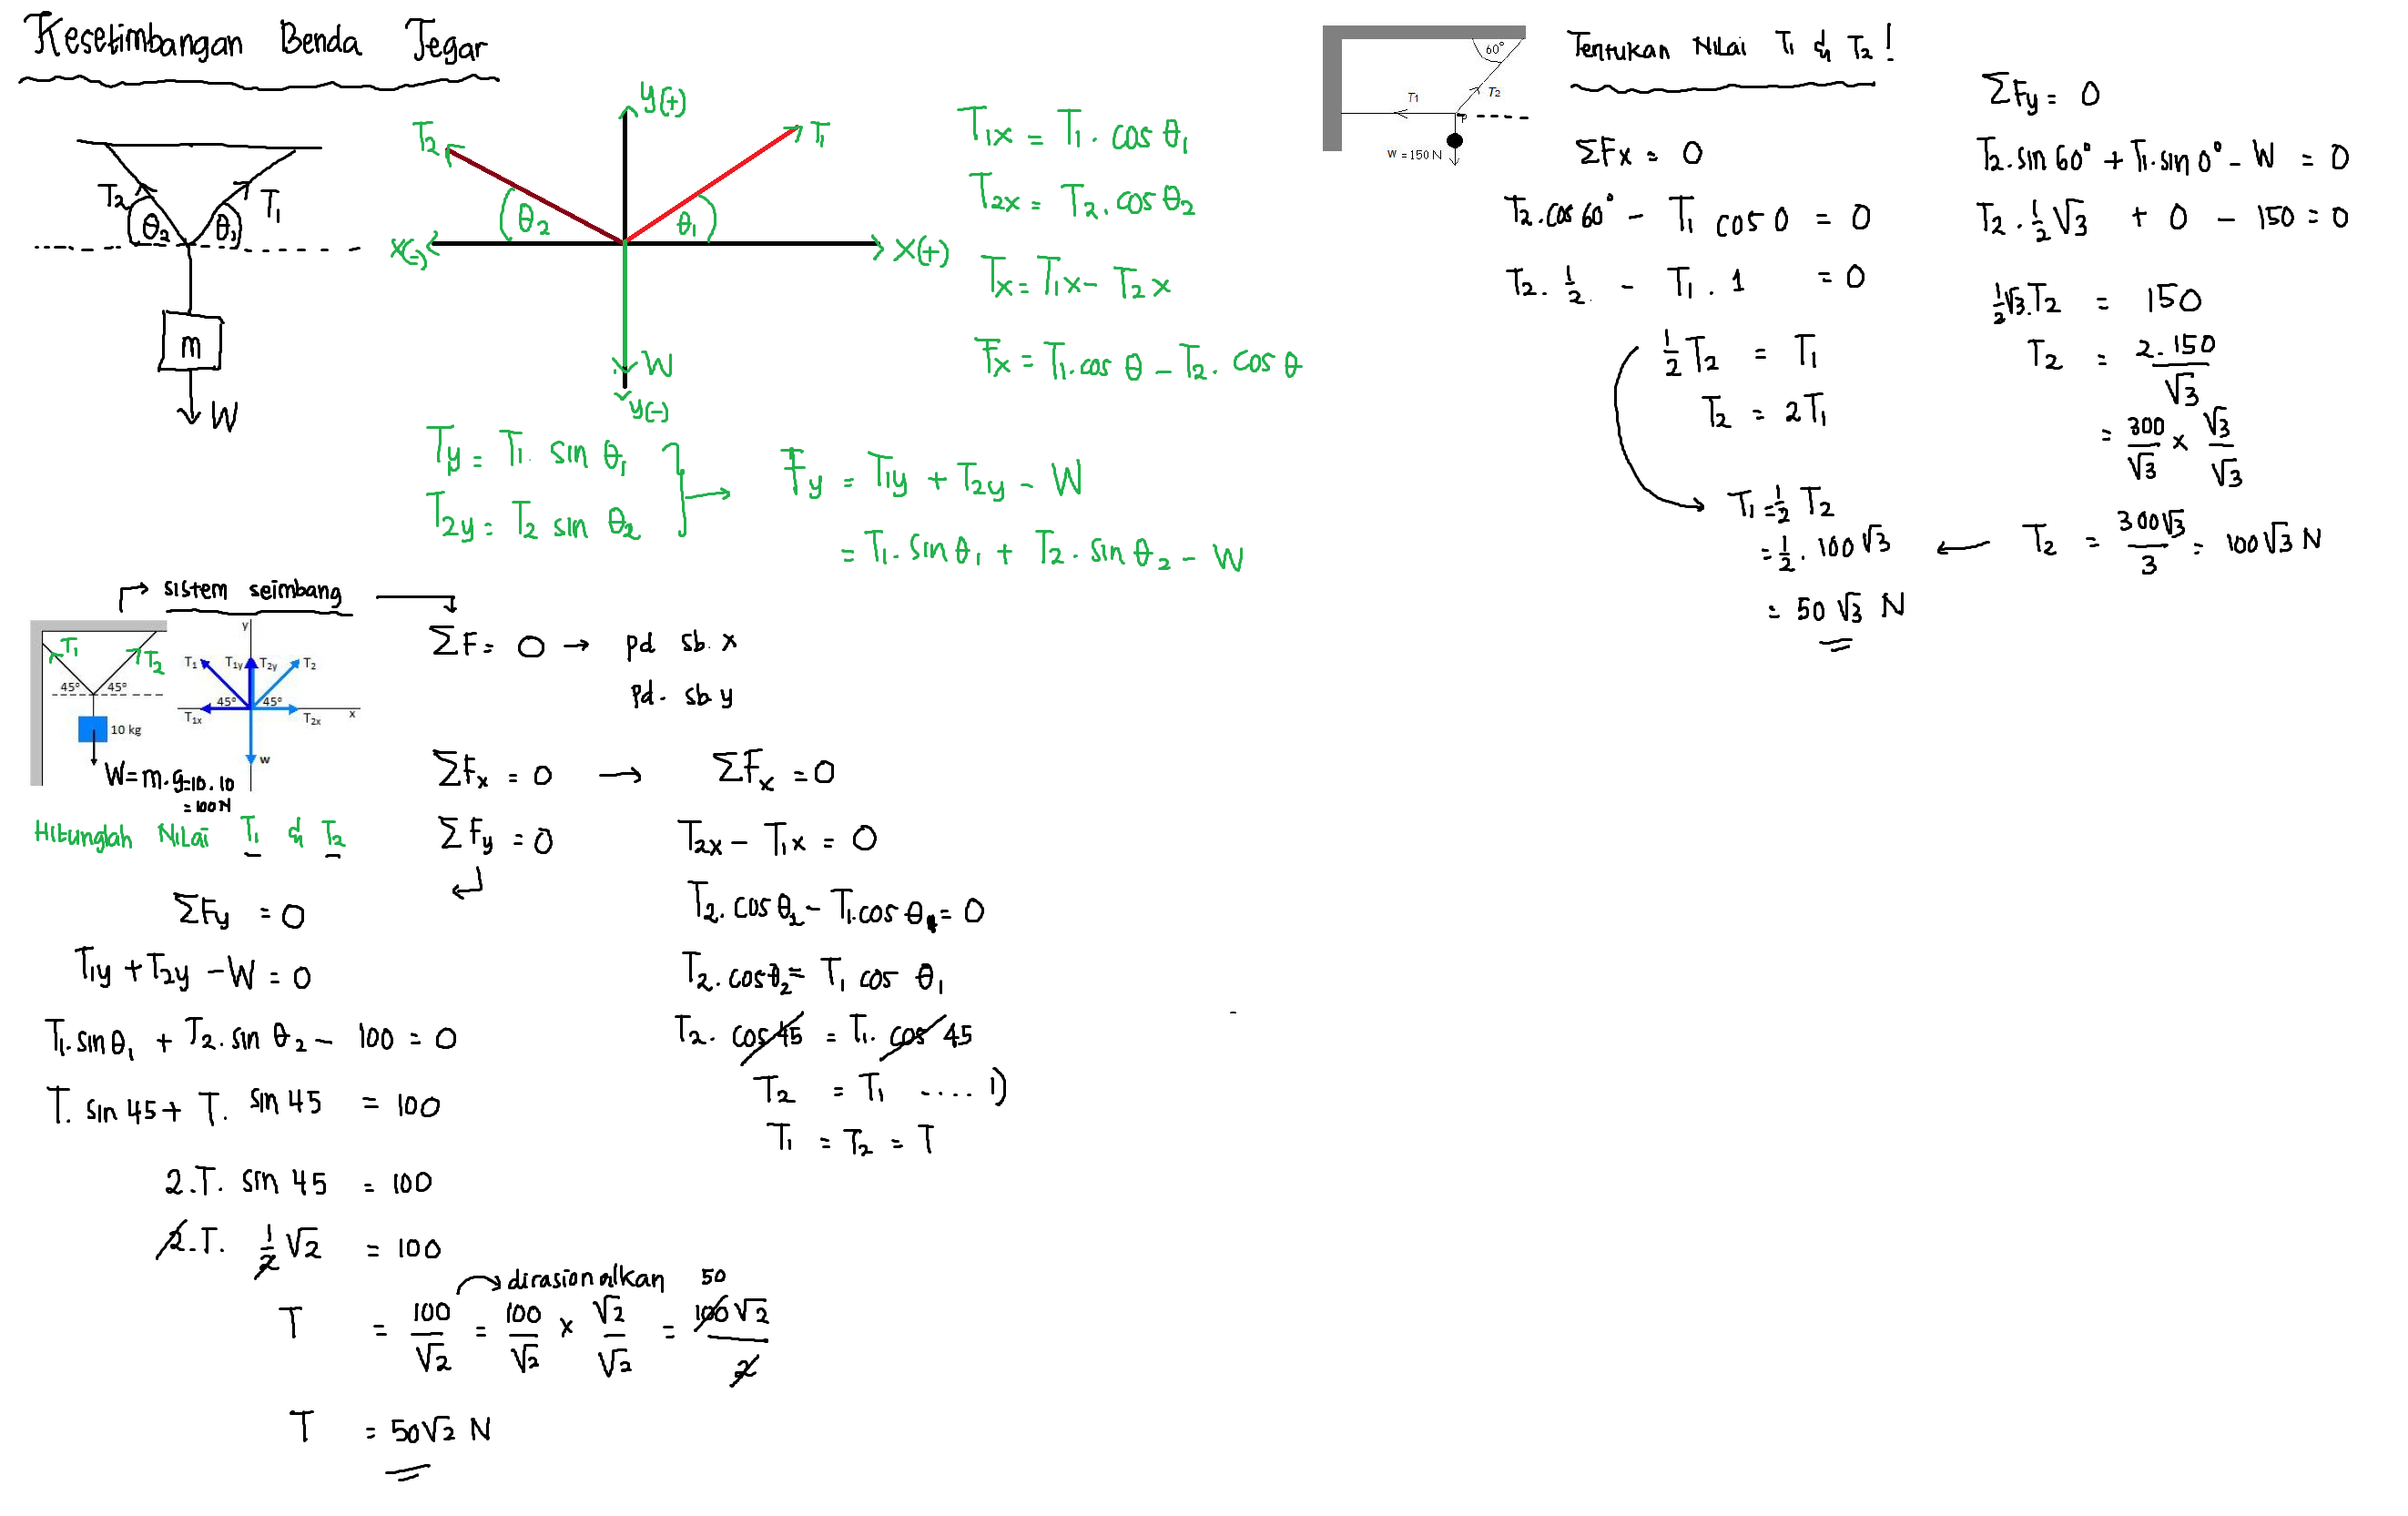 Kesetimbangan Benda Tegar
T₂ T₁
θ₂ θ₁
m
W
y(+)
T₂ T₁
θ₂ θ₁
x(-) x(+)
W
y(-)
T₁x = T₁ . cos θ₁
T₂x = T₂ . cos θ₂
Tx = T₁x - T₂x
Fx = T₁ . cos θ - T₂ . cos θ
Ty = T₁ . sin θ₁
T₂y = T₂ sin θ₂
Fy = T₁y + T₂y - W
= T₁ . sin θ₁ + T₂ . sin θ₂ - W
sistem seimbang
T₁ T₂
45° 45°
10 kg
W = m . g = 10 . 10
= 100 N
y
T₁ T₁y T₂y T₂
45° 45°
T₁x T₂x x
w
Hitunglah Nilai T₁ & T₂
ΣF = 0 → pd sb. x
pd. sb y
ΣFx = 0 → ΣFx = 0
ΣFy = 0
T₂x - T₁x = 0
T₂ . cos θ₂ - T₁ . cos θ₁ = 0
T₂ . cos θ₂ = T₁ cos θ₁
T₂ . cos 45 = T₁ . cos 45
T₂ = T₁ .... 1)
T₁ = T₂ = T
ΣFy = 0
T₁y + T₂y - W = 0
T₁ . sin θ₁ + T₂ . sin θ₂ - 100 = 0
T . sin 45 + T . sin 45 = 100
2 . T . sin 45 = 100
2 . T . 1/2 √2 = 100
dirasionalkan 50
T = 100/√2 = 100/√2 × √2/√2 = 100√2/2
T = 50√2 N
60°
T₁ T₂
P
W = 150 N
Tentukan Nilai T₁ & T₂ !
ΣFx = 0
T₂ . cos 60° - T₁ cos 0 = 0
T₂ . 1/2 - T₁ . 1 = 0
1/2 T₂ = T₁
T₂ = 2T₁
T₁ = 1/2 T₂
= 1/2 . 100√3
= 50√3 N
ΣFy = 0
T₂ . sin 60° + T₁ . sin 0° - W = 0
T₂ . 1/2 √3 + 0 - 150 = 0
1/2 √3 . T₂ = 150
T₂ = 2 . 150/√3
= 300/√3 × √3/√3
T₂ = 300√3/3 = 100√3 N